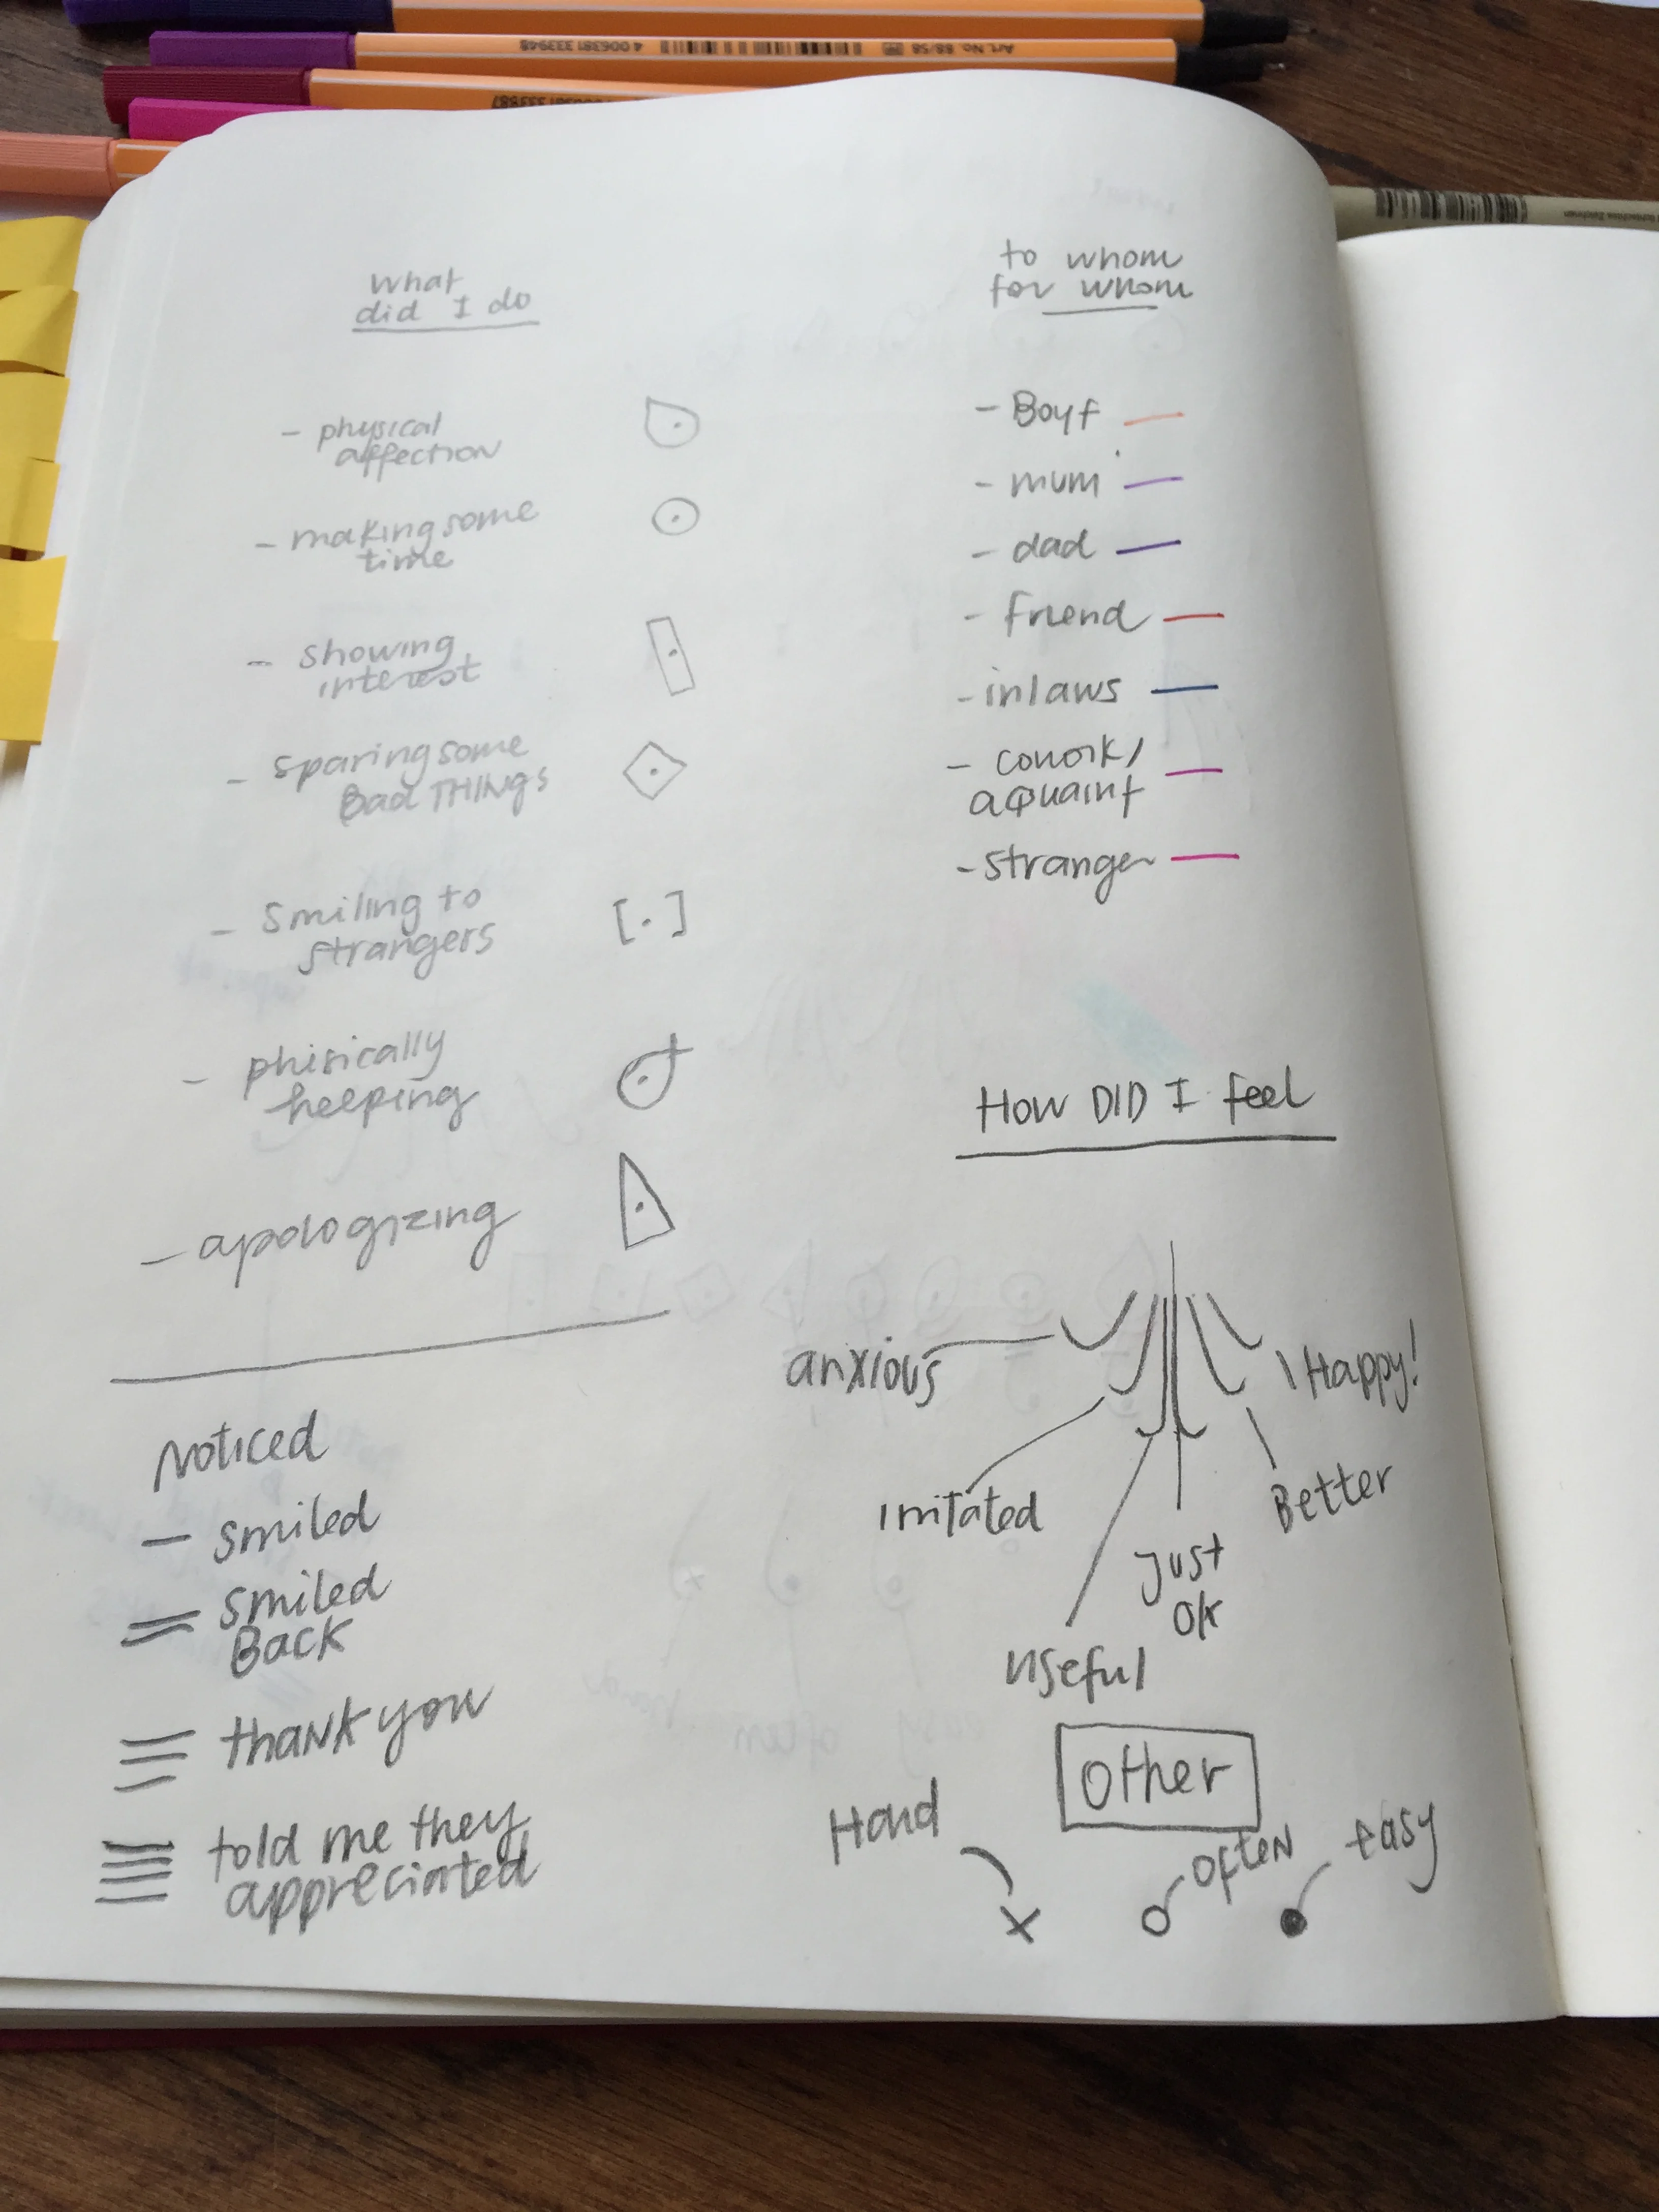 Art. No. 88/58
4 006381 333948
what
did I do
- physical
affection
- making some
time
- showing
interest
- sparing some
Bad THINGS
- Smiling to
strangers
[.]
- phisically
heeping
- apologizing
Noticed
- smiled
= smiled
Back
≡ thank you
told me they
appreciated
to whom
for whom
- Boyf
- mum
- dad
- friend
- inlaws
- cowork/
aquaint
- stranger
HOW DID I feel
anxious
Irritated
useful
Just
Ok
Better
Happy!
Other
Hard
often
easy